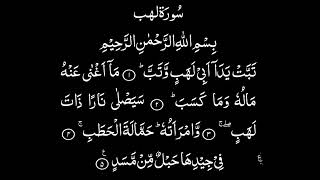 سُورَة لهب
بِسْمِ اللهِ الرَّحْمٰنِ الرَّحِيْمِ
تَبَّتْ يَدَاۤ اَبِىْ لَهَبٍ وَّتَبَّ ؕ ۝۱ مَاۤ اَغْنٰى عَنْهُ
مَالُهٗ وَمَا كَسَبَ ؕ ۝۲ سَيَصْلٰى نَارًا ذَاتَ
لَهَبٍ ۖۚ ۝۳ وَّامْرَاَتُهٗ ؕ حَمَّالَةَ الْحَطَبِ ۚ ۝۴
فِىْ جِيْدِهَا حَبْلٌ مِّنْ مَّسَدٍ ۠ ۝۵